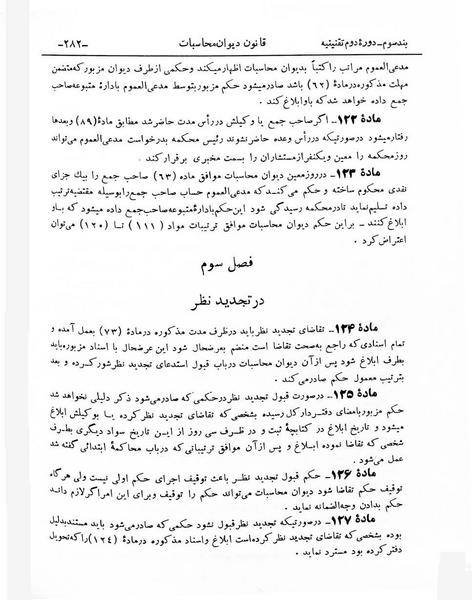 بند سوم ـ دورهٔ دوم تقنینیه
قانون دیوان محاسبات
ـ۲۸۲ـ
مدعی‌العموم مراتب را کتباً بدیوان محاسبات اظهار میکند و حکمی از طرف دیوان مزبور که متضمن
مهلت مذکوره در مادهٔ (۶۲) باشد صادر میشود حکم مزبور بتوسط مدعی‌العموم بادارهٔ متبوعه صاحب
جمع داده خواهد شد که باو ابلاغ کند .
مادهٔ ۱۲۲ ـ اگر صاحب جمع یا وکیلش در رأس مدت حاضر شد مطابق مادهٔ (۸۹) و بعدها
رفتار میشود در صورتیکه در رأس وعده حاضر نشوند رئیس محکمه بدرخواست مدعی‌العموم می‌تواند
روز محکمه را معین و یکنفر از مستشاران را بسمت مخبری برقرار کند .
مادهٔ ۱۲۳ ـ در روز معین دیوان محاسبات موافق ماده (۶۳) صاحب جمع را بیك جزای
نقدی محکوم ساخته و حکم می‌کند که مدعی‌العموم حساب صاحب جمع را بوسیله مقتضیه ترتیب
داده تسلیم نماید تا در محکمه رسیدگی شود این حکم بادارهٔ متبوعه صاحب جمع داده میشود که باو
ابلاغ کنند ـ بر این حکم دیوان محاسبات موافق ترتیبات مواد (۱۱۱) تا (۱۲۰) می‌توان
اعتراض کرد .
فصل سوم
در تجدید نظر
مادهٔ ۱۲۴ ـ تقاضای تجدید نظر باید در ظرف مدت مذکوره در مادهٔ (۷۳) بعمل آمده و
تمام اسنادی که راجع به صحت تقاضا است منضم بعرضحال شود این عرضحال با اسناد مزبوره باید
بطرف ابلاغ شود پس از آن دیوان محاسبات در باب قبول استدعای تجدید نظر شور کرده و بعد
بترتیب معمول حکم صادر می‌کند .
مادهٔ ۱۲۵ ـ در صورت قبول تجدید نظر در حکمی که صادر می‌شود ذکر دلیلی نخواهد شد
حکم مزبور بامضای دفتردار کل رسیده بشخصی که تقاضای تجدید نظر کرده یا بوکیلش ابلاغ
میشود و تاریخ ابلاغ در کتابچهٔ ثبت و در ظرف سی روز از این تاریخ سواد دیگری بطرف
شخصی که تقاضا نموده ابلاغ و پس از آن موافق ترتیباتی که در باب محاکمهٔ ابتدائی گفته شد
عمل می‌شود .
مادهٔ ۱۲۶ ـ حکم قبول تجدید نظر باعث توقیف اجرای حکم اولی نیست ولی هر گاه
توقیف حکم تقاضا شود دیوان محاسبات می‌تواند حکم را توقیف و برای این امر اگر لازم داند
حکم بدادن وجه‌الضمانه نماید .
مادهٔ ۱۲۷ ـ در صورتیکه تجدید نظر قبول نشود حکمی که صادر می‌شود باید مستند بدلیل
بوده بشخصی که تقاضای تجدید نظر کرده است ابلاغ و اسناد مذکوره در مادهٔ (۱۲۴) را که تحویل
دفتر کرده بود مسترد نماید .